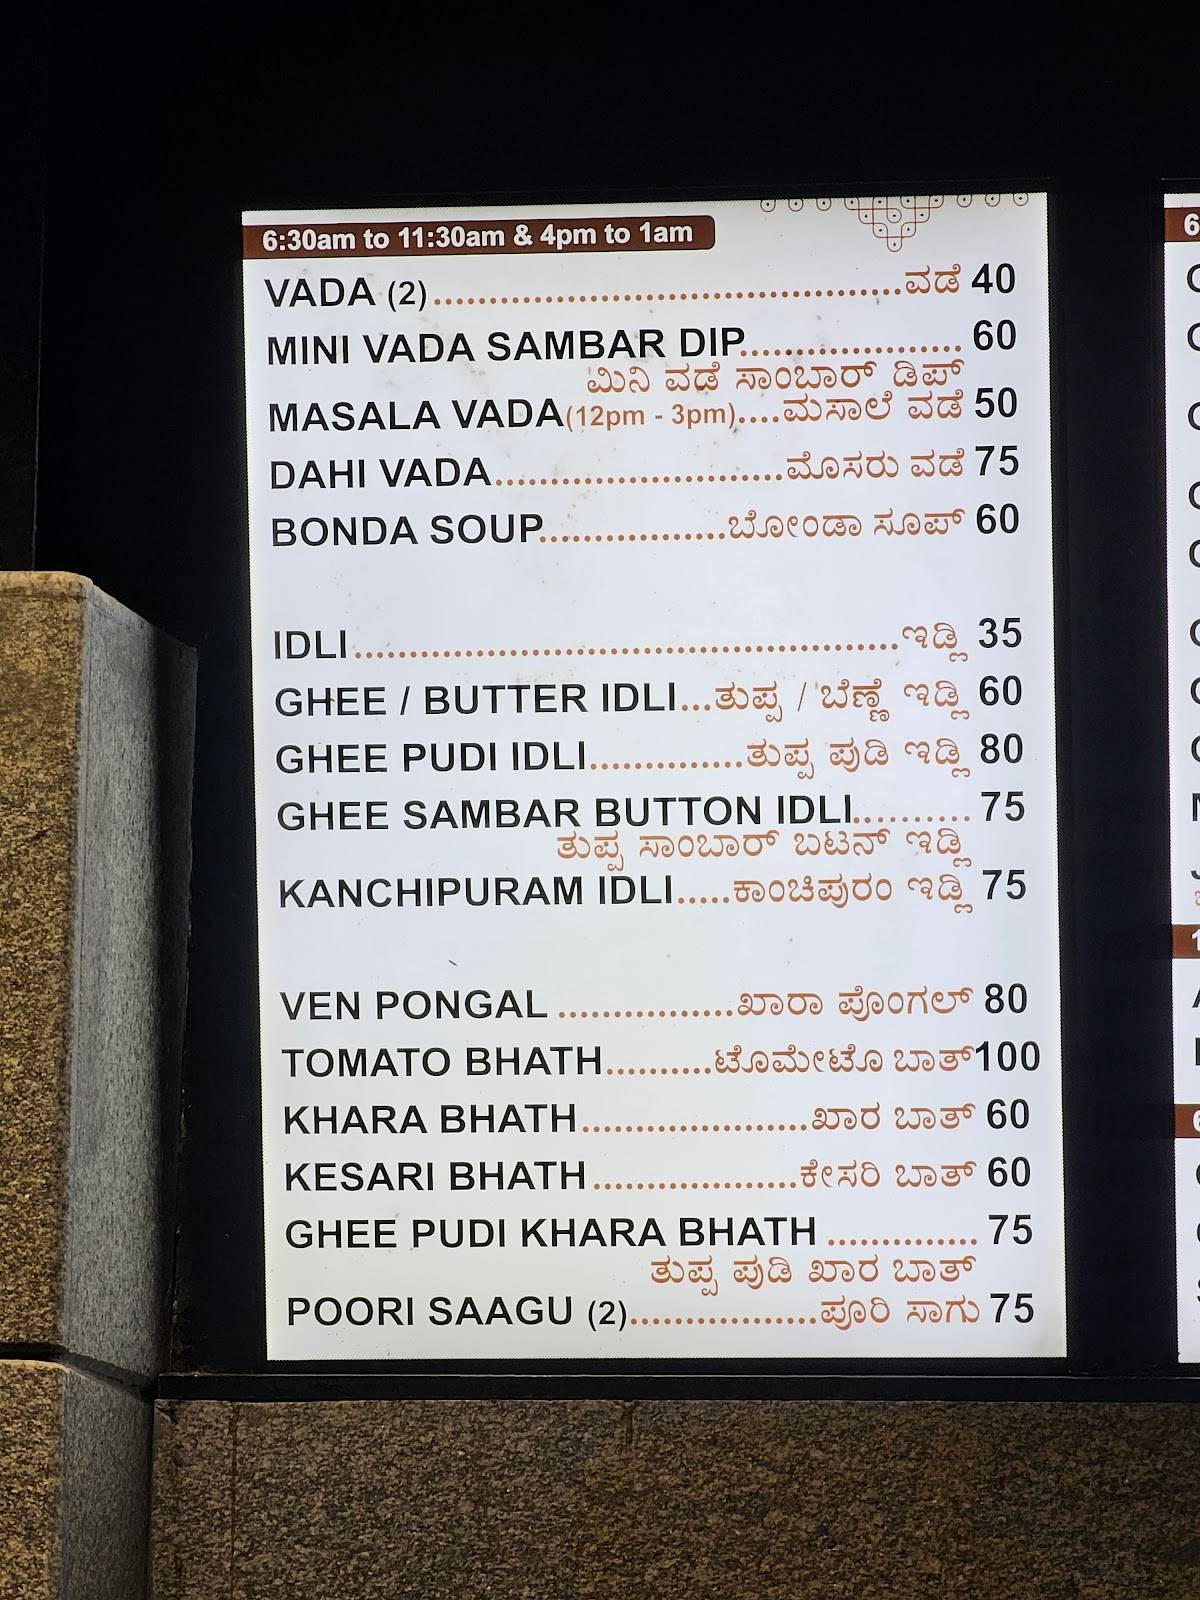 6:30am to 11:30am & 4pm to 1am
VADA (2)........................................ವಡೆ 40
MINI VADA SAMBAR DIP.................... 60
ಮಿನಿ ವಡೆ ಸಾಂಬಾರ್ ಡಿಪ್
MASALA VADA(12pm - 3pm)....ಮಸಾಲೆ ವಡೆ 50
DAHI VADA.........................ಮೊಸರು ವಡೆ 75
BONDA SOUP.................ಬೋಂಡಾ ಸೂಪ್ 60
IDLI...............................................ಇಡ್ಲಿ 35
GHEE / BUTTER IDLI...ತುಪ್ಪ / ಬೆಣ್ಣೆ ಇಡ್ಲಿ 60
GHEE PUDI IDLI..............ತುಪ್ಪ ಪುಡಿ ಇಡ್ಲಿ 80
GHEE SAMBAR BUTTON IDLI.......... 75
ತುಪ್ಪ ಸಾಂಬಾರ್ ಬಟನ್ ಇಡ್ಲಿ
KANCHIPURAM IDLI.....ಕಾಂಚಿಪುರಂ ಇಡ್ಲಿ 75
VEN PONGAL ................ಖಾರಾ ಪೊಂಗಲ್ 80
TOMATO BHATH..........ಟೊಮೇಟೊ ಬಾತ್ 100
KHARA BHATH.....................ಖಾರ ಬಾತ್ 60
KESARI BHATH...................ಕೇಸರಿ ಬಾತ್ 60
GHEE PUDI KHARA BHATH .............. 75
ತುಪ್ಪ ಪುಡಿ ಖಾರ ಬಾತ್
POORI SAAGU (2).................ಪೂರಿ ಸಾಗು 75